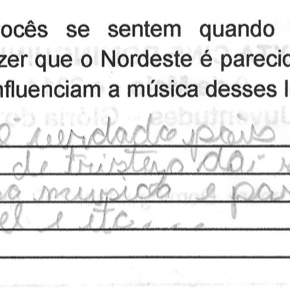 ocês se sentem quando
zer que o Nordeste é parecid
nfluenciam a música desses l
o verdade pois
de tristeza da
musica e par
el e itc...